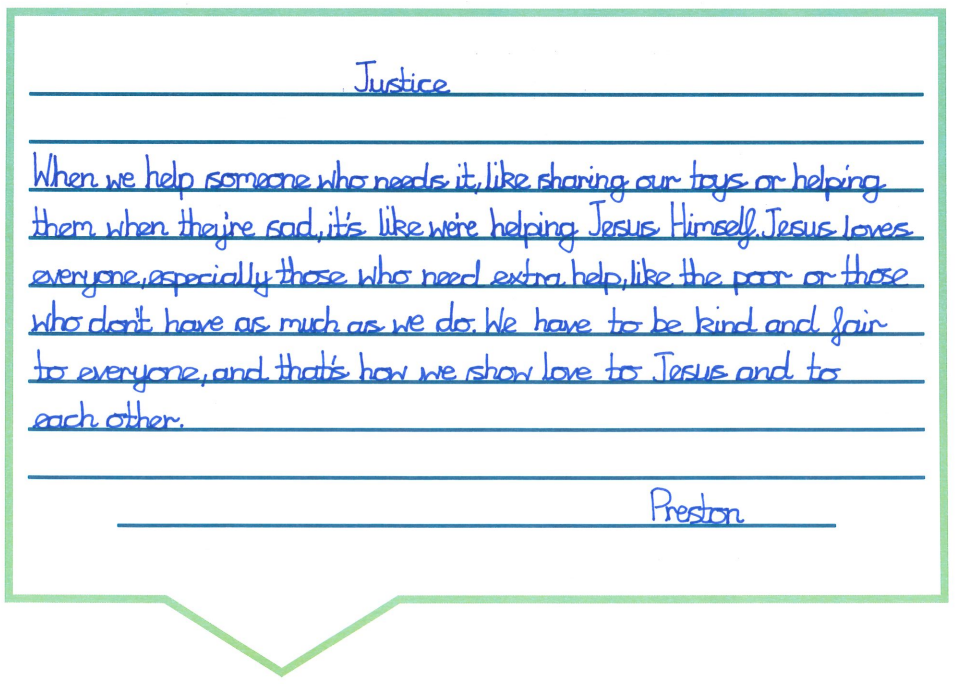 Justice
When we help someone who needs it, like sharing our toys or helping
them when they're sad, it's like we're helping Jesus Himself. Jesus loves
everyone, especially those who need extra help, like the poor or those
who don't have as much as we do. We have to be kind and fair
to everyone, and that's how we show love to Jesus and to
each other.
Preston